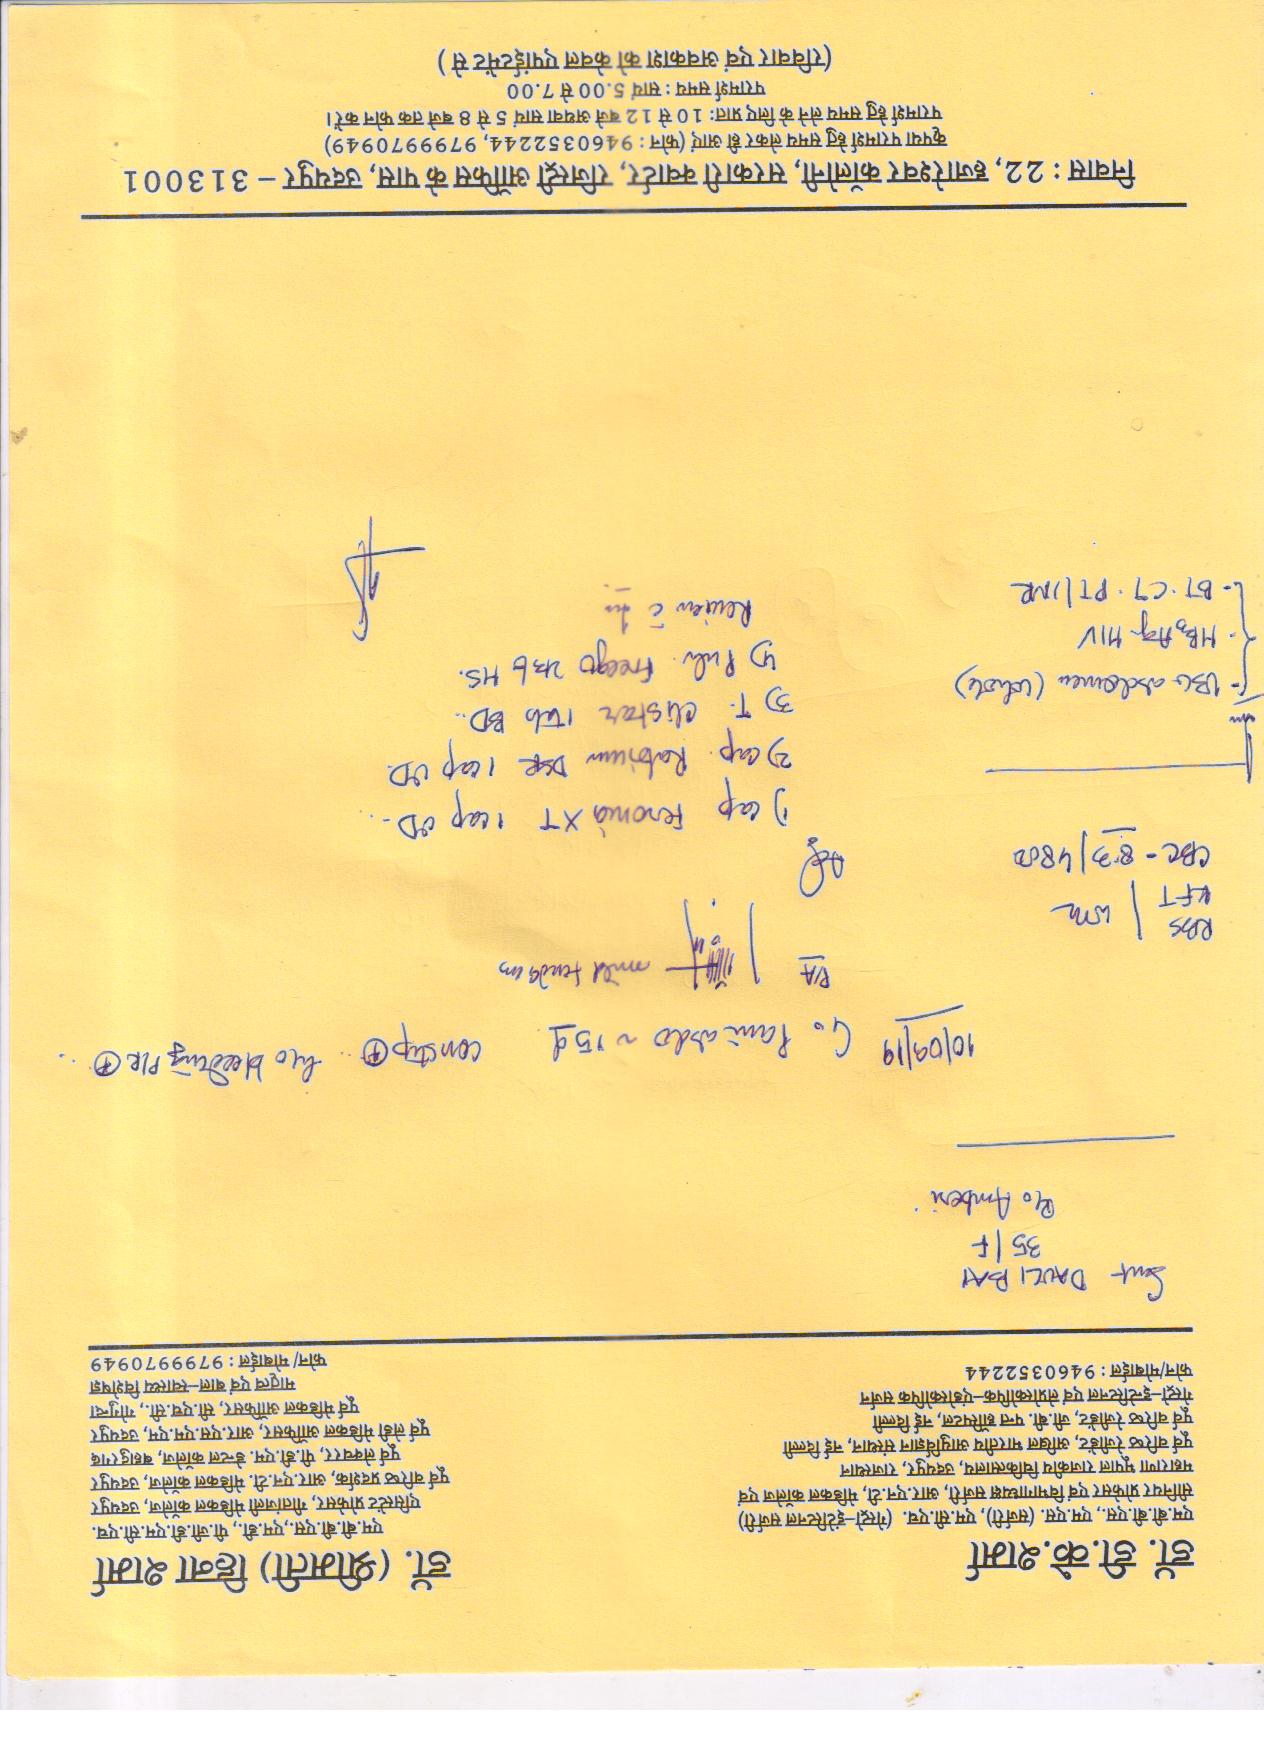 डॉ. डी.के.शर्मा
एम.बी.बी.एस., एम.एस. (सर्जरी), एम.सी.एच. (गेस्ट्रो-इंटेस्टिनल सर्जरी)
सीनियर प्रोफेसर एवं विभागाध्यक्ष सर्जरी, आर.एन.टी. मेडिकल कॉलेज एवं
महाराणा भूपाल राजकीय चिकित्सालय, उदयपुर, राजस्थान
पूर्व वरिष्ठ रेजीडेंट, अखिल भारतीय आयुर्विज्ञान संस्थान, नई दिल्ली
पूर्व वरिष्ठ रेजीडेंट, जी.बी. पन्त हॉस्पिटल, नई दिल्ली
गेस्ट्रो-इन्टेस्टिनल एवं लेप्रोस्कोपिक-एंडोस्कोपिक सर्जन
फोन/मोबाईल : 9460352244
डॉ. (श्रीमती) हिना शर्मा
एम.बी.बी.एस.,एम.डी., पी.जी.डी.एम.सी.एच.
एसिस्टेंट प्रोफेसर, गीतांजली मेडिकल कॉलेज, उदयपुर
पूर्व वरिष्ठ प्रदर्शक, आर.एन.टी. मेडिकल कॉलेज, उदयपुर
पूर्व लेक्चरर, पी.डी.एम. डेन्टल कॉलेज, बहादुरगढ़
पूर्व लेडी मेडिकल ऑफिसर, आर.एस.एम.एम, उदयपुर
पूर्व मेडिकल ऑफिसर, सी.एच.सी., गोगुन्दा
मातृत्व एवं बाल-स्वास्थ्य विशेषज्ञ
फोन/ मोबाईल : 9799970949
Smt DALI BAI
35/F
R/o Amberi
10/09/19 C/o Pain abdo ~ 15 d constip ⊕ h/o bleeding P/R ⊕
P/A mild tenderness
RBS
KFT WNL
CBC - 8.3/4800
Adv
1) Cap Feronia XT 1 cap OD
2) Cap. Rabium DSR 1 cap OD
3) T. 1 tab BD
4) Pulv. Freego 2 tsf HS.
Review c̄ Inv
Inv
- USG abdomen (whole)
- HBsAg HIV
- BT. CT. PT/INR
निवास : 22, हजारेश्वर कॉलोनी, सरकारी क्वार्टर, रजिस्ट्री ऑफिस के पास, उदयपुर - 313001
कृपया परामर्श हेतु समय लेकर ही आएं (फोन : 9460352244, 9799970949)
परामर्श हेतु समय लेने के लिए प्रात: 10 से 12 बजे अथवा सायं 5 से 8 बजे तक फोन करें।
परामर्श समय : सायं 5.00 से 7.00
(रविवार एवं अवकाश को केवल एपाईंटमेंट से )